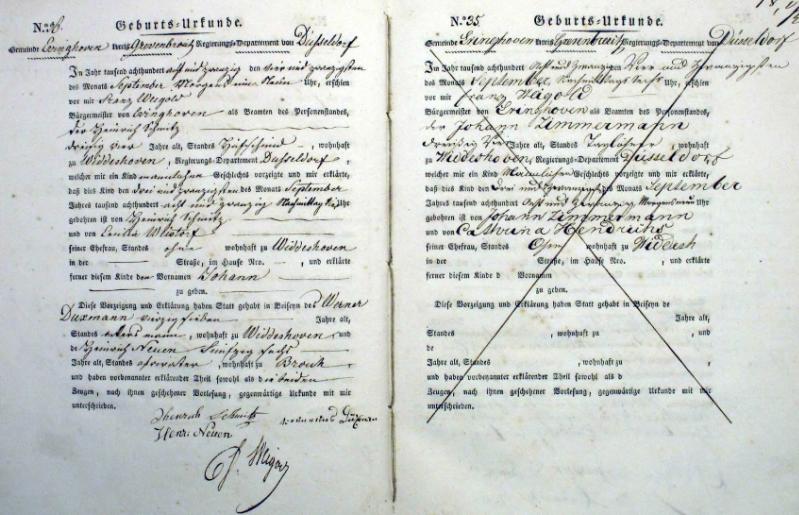 No. 36. Geburts-Urkunde.
Gemeinde Evinghoven Kreis Grevenbroich Regierungs-Departement von Düsseldorf
Im Jahr tausend achthundert acht und zwanzig den vier und zwanzigsten
des Monats September Morgens um Neun Uhr, erschien
vor mir Franz Weigold
Bürgermeister von Evinghoven als Beamten des Personenstandes,
der Heinrich Schmitz
dreißig vier Jahre alt, Standes , wohnhaft
zu Widdeshoven, Regierungs-Departement Düsseldorf,
welcher mir ein Kind männlichen Geschlechts vorzeigte und mir erklärte,
daß dies Kind den drei und zwanzigsten des Monats September
Jahres tausend achthundert acht und zwanzig Nachmittag Uhr
gebohren ist von Heinrich Schmitz
und von
seiner Ehefrau, Standes ohne wohnhaft zu Widdeshoven
in der Straße, im Hause Nro. , und erklärte
ferner diesem Kinde den Vornamen Johann
zu geben.
Diese Vorzeigung und Erklärung haben Statt gehabt in Beiseyn des Werner
Duxmann vierzig sieben Jahre alt,
Standes Ackersmann, wohnhaft zu Widdeshoven, und
de Heinrich Neuen fünfzig sechs
Jahre alt, Standes , wohnhaft zu Broich
und haben vorbenannter erklärender Theil sowohl als die beiden
Zeugen, nach ihnen geschehener Vorlesung, gegenwärtige Urkunde mit mir
unterschrieben.
Schmitz
Henr: Neuen
No. 35 Geburts-Urkunde.
Gemeinde Evinghoven Kreis Grevenbroich Regierungs-Departement von Düsseldorf
Im Jahr tausend achthundert Acht und zwanzig Vier und Zwanzigsten
des Monats September Nachmittags Sechs Uhr, erschien
vor mir Franz Weigold
Bürgermeister von Evinghoven als Beamten des Personenstandes,
der Johann Zimmermann
Dreißig Vier Jahre alt, Standes Taglöhner, wohnhaft
zu Widdeshoven, Regierungs-Departement Düsseldorf
welcher mir ein Kind Männlichen Geschlechts vorzeigte und mir erklärte,
daß dies Kind den Drei und Zwanzigst des Monats September
Jahres tausend achthundert Acht und zwanzig Morgens Uhr
gebohren ist von Johann Zimmermann
und von Cathrina Hendrichs
seiner Ehefrau, Standes Ohne wohnhaft zu Widdesh
in der Straße, im Hause Nro. , und erklärte
ferner diesem Kinde d Vornamen
zu geben.
Diese Vorzeigung und Erklärung haben Statt gehabt in Beiseyn de
Jahre alt,
Standes , wohnhaft zu , und
de
Jahre alt, Standes , wohnhaft zu
und haben vorbenannter erklärender Theil sowohl als d
Zeugen, nach ihnen geschehener Vorlesung, gegenwärtige Urkunde mit mir
unterschrieben.